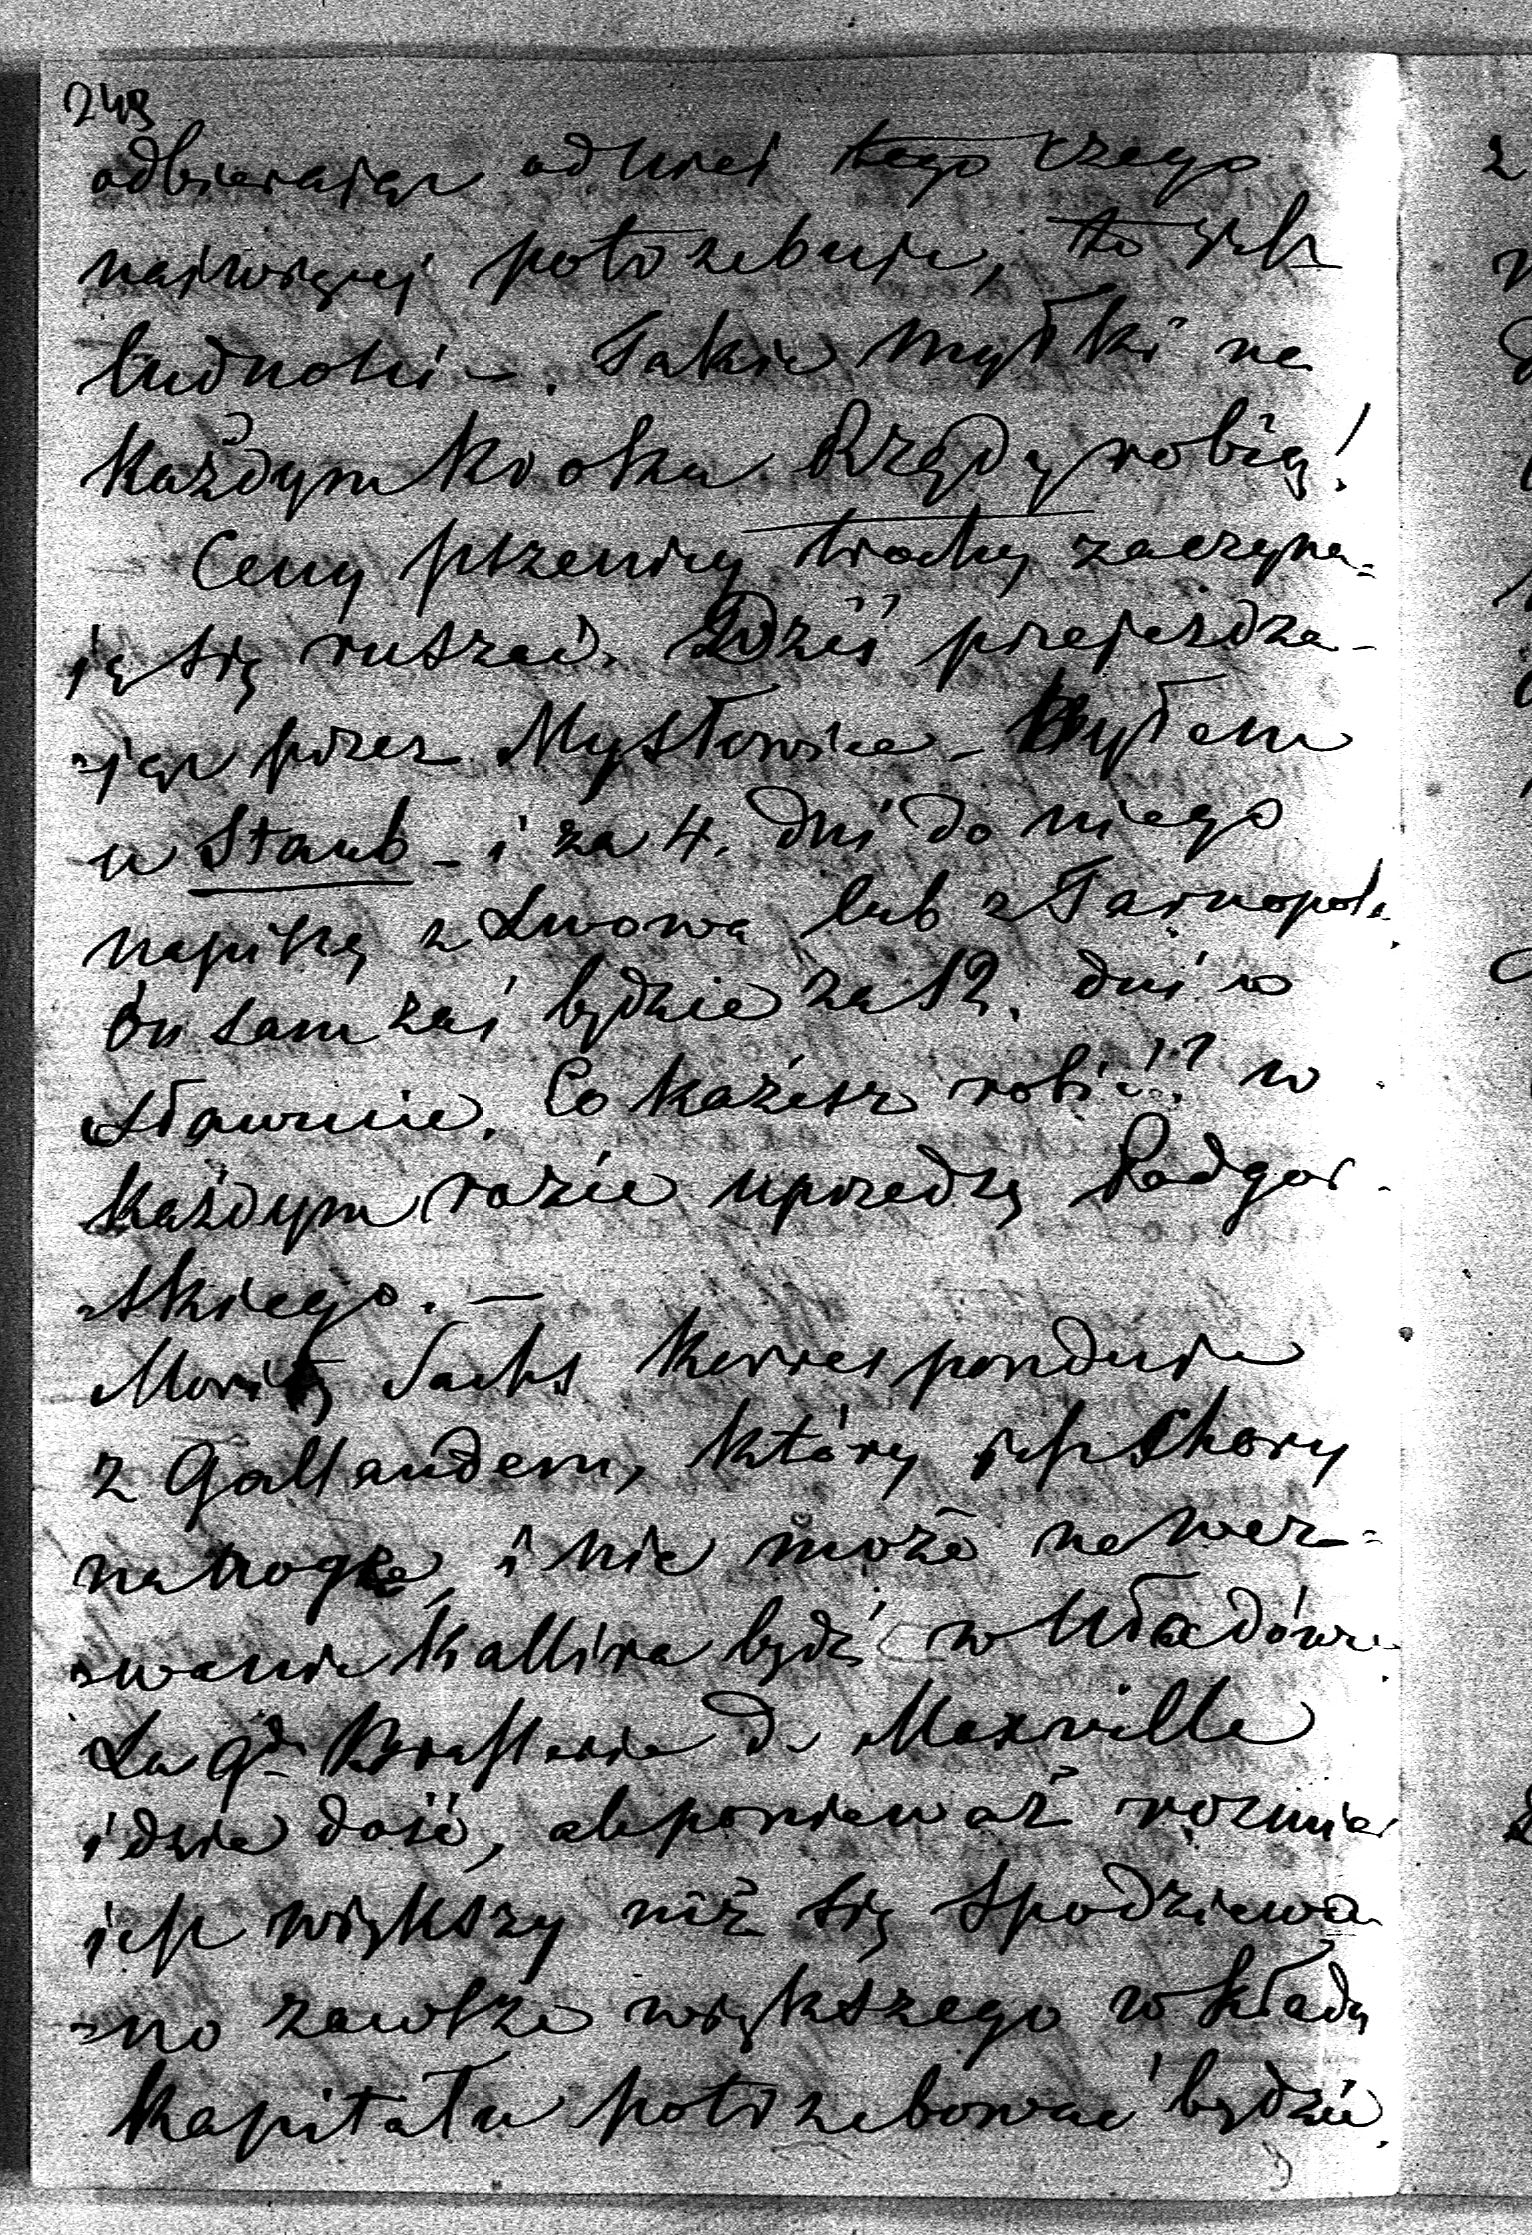 243
odbierając od niej tego czego
najwięcej potrzebuje, to jest
ludności —. Takie myłki na
każdym kroku Rządy robią!
Ceny pszenicy trochę zaczyna=
ją się ruszać. Dziś przejeżdża-
=jąc przez Mysłowice — Byłem
u Staub — i za 4. dni do niego
napiszę z Lwowa lub z Tarnopola.
On sam zaś będzie za 12. dni w
Sławnie. Co każesz robić!? w
każdym razie uprzedzę Podgor-
skiego. —
Moritz Sachs Korresponduje
z Gallandem, który jest chory
na nogę, i nie może na wez=
=wanie Kallira bydź w Uładówce.
La Gde Brasserie de Maxville
idzie dość, ale ponieważ rozmiar
jest większy niż się spodziewa
=no zawsze większego wkładu
Kapitału potrzebować będzie.